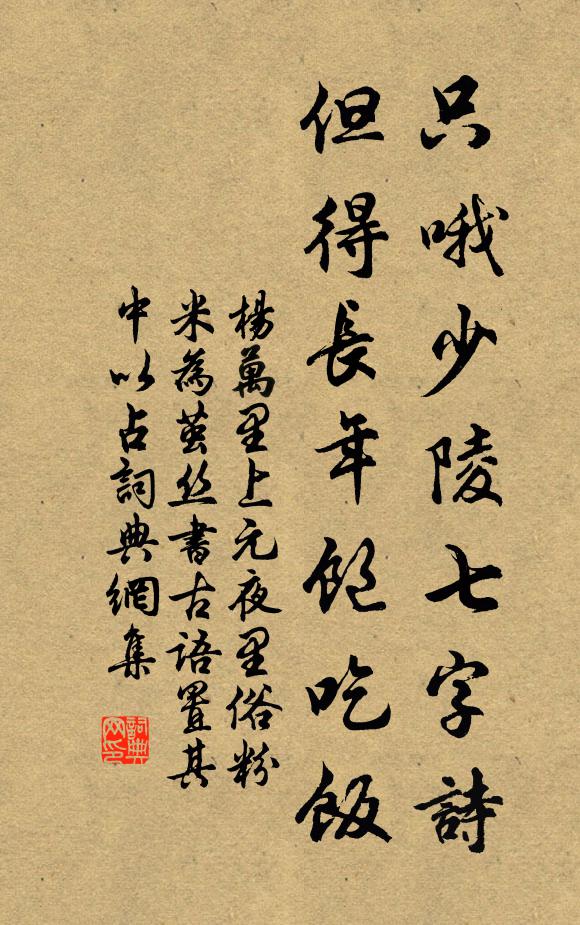 只哦少陵七字詩
但得長年飽吃飯
楊萬里上元夜里俗粉
米為茧丝書古語置其
中以占詞典網集
詞典
网印